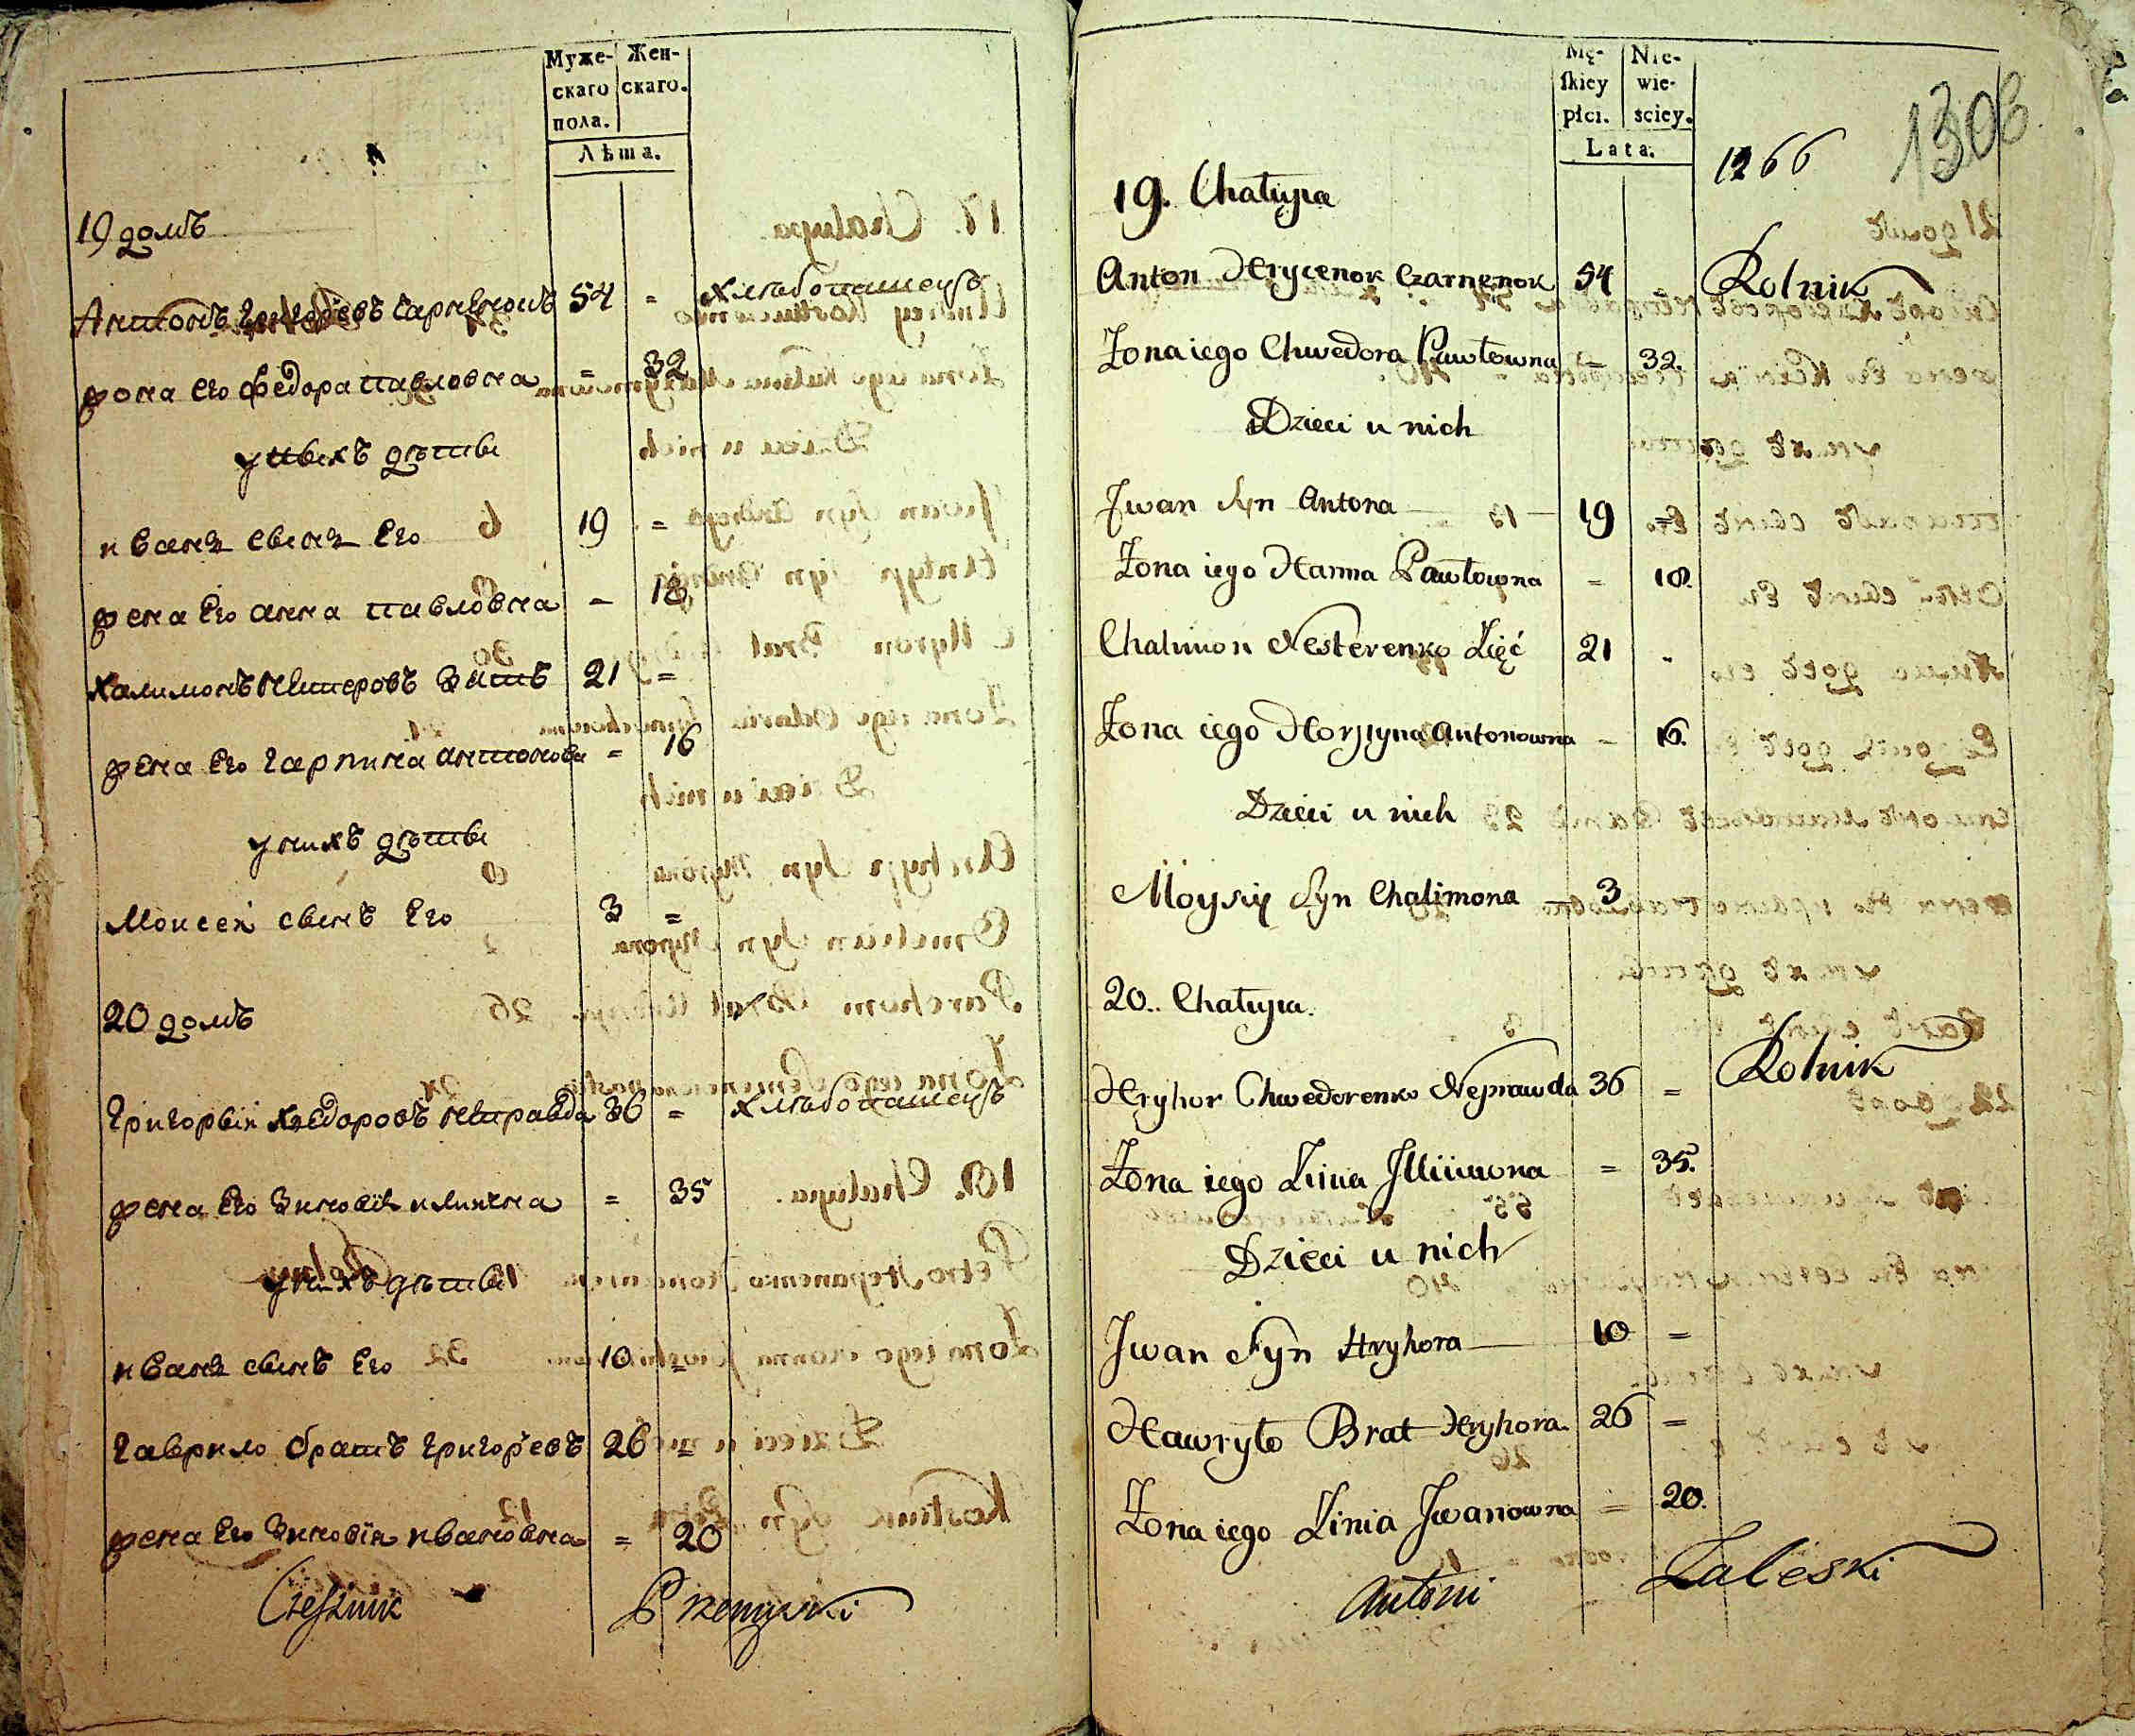 Муже- Жен-
скаго скаго.
пола.
Лѣта.
19 домъ
Антонъ Григорьевъ Чарненокъ 54 = хлѣбопашецъ
жена его Федора павловна = 32
у ныхъ дѣти
иванъ сынъ его 19 =
жена его анна павловна = 18
халимонъ нестеровъ зять 21 =
жена его гарпина антонова = 16
у нихъ дѣти
Моисей сынъ его 3 =
20 домъ
Григорый хведоровъ неправда 36 = хлѣбопашецъ
жена его зиновія = 35
у нихъ дѣти
иванъ сынъ его 10 =
гаврило братъ григорьевъ 26 =
жена его зиновія ивановна = 20
Cześnik
Mę- Nie-
skiey wie-
płci. ściey.
Lata.
1266 1308
19. Chałupa
Anton Hrycenok Czarnenok 54 - Rolnik
Żona iego Chwedora Pawłowna = 32.
Dzieci u nich
Jwan Syn Antona 19 =
Żona iego Hanna Pawłowna = 18.
Chalimon Nesterenko Zięć 21 -
Żona iego Horpyna Antonowna - 16.
Dzieci u nich
Moysiy Syn Chalimona 3
20. Chałupa.
Hryhor Chwedorenko Neprawda 36 = Rolnik
Żona iego = 35.
Dzieci u nich
Jwan Syn Hryhora 10 =
Hawryło Brat Hryhora 26 =
Żona iego Zinia Jwanowna = 20.
Antoni Zaleski